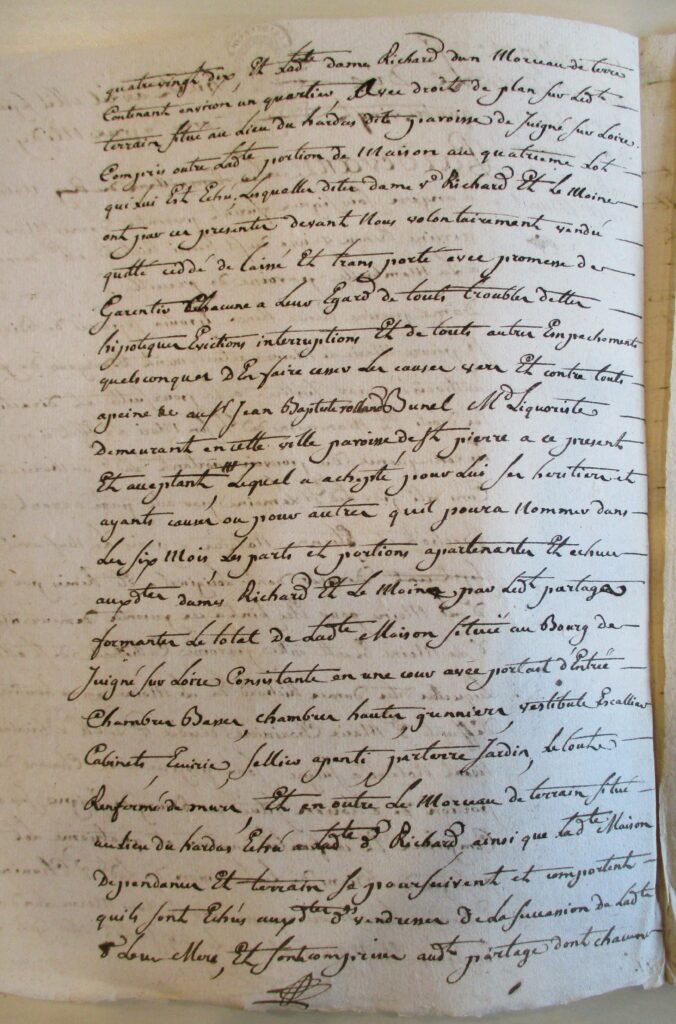 quatrevingt dix, Et Ladte dame Richard dun Morceau de terre
Contenant environ un quartier Avec droits de plan sur Ledt
terrain situé au Lieu du hardas dite paroisse de Juigné sur Loire,
Compris outre Ladte portion de Maison au quatrieme Lot
qui Lui Est Echu, Lesquelles dites dame ve Richard Et Le Moine
ont par ces presentes devant Nous volontairement vendu
quitté ceddé delaissé Et transporté avec promesse de
Garentir Chacune a Leur Egard de touts troubles dettes
hipoteques Evictions interruptions Et de touts autres Empechements
quelsconques D'En faire cesser Les causes vers Et contre touts
apeine &c au sr Jean Baptiste rolland Bunel Md Liquoriste
Demeurant en cette ville paroisse de St pierre a ce present
Et acceptant, Lequel a achepté pour Lui ses heritiers et
ayants causes ou pour autres qu'il poura Nommer dans
Les six Mois, Les parts et portions apartenantes Et echues
auxdtes dames Richard Et Le Moine par Ledt partage
formantes Le total de Ladte Maison situéë au Bourg de
Juigné sur Loire Consistante en une cour avec portail d'Entréë
Chambres Basses, chambres hautes, grenniers, vestibule Escallier
Cabinets Ecurie, sellier apenti parterre Jardin, Le tout
Renfermé de murs, Et en outre Le Morceau de terrain situé
au Lieu du hardas Echu a Ladte de Richard, ainsi que Ladte Maison
Dependances Et terrain se poursuivent et comportent
quils sont Echus auxdtes des vendresses de La succession de Ladte
de Leur Mere, Et sont comprises audt partage dont chacune